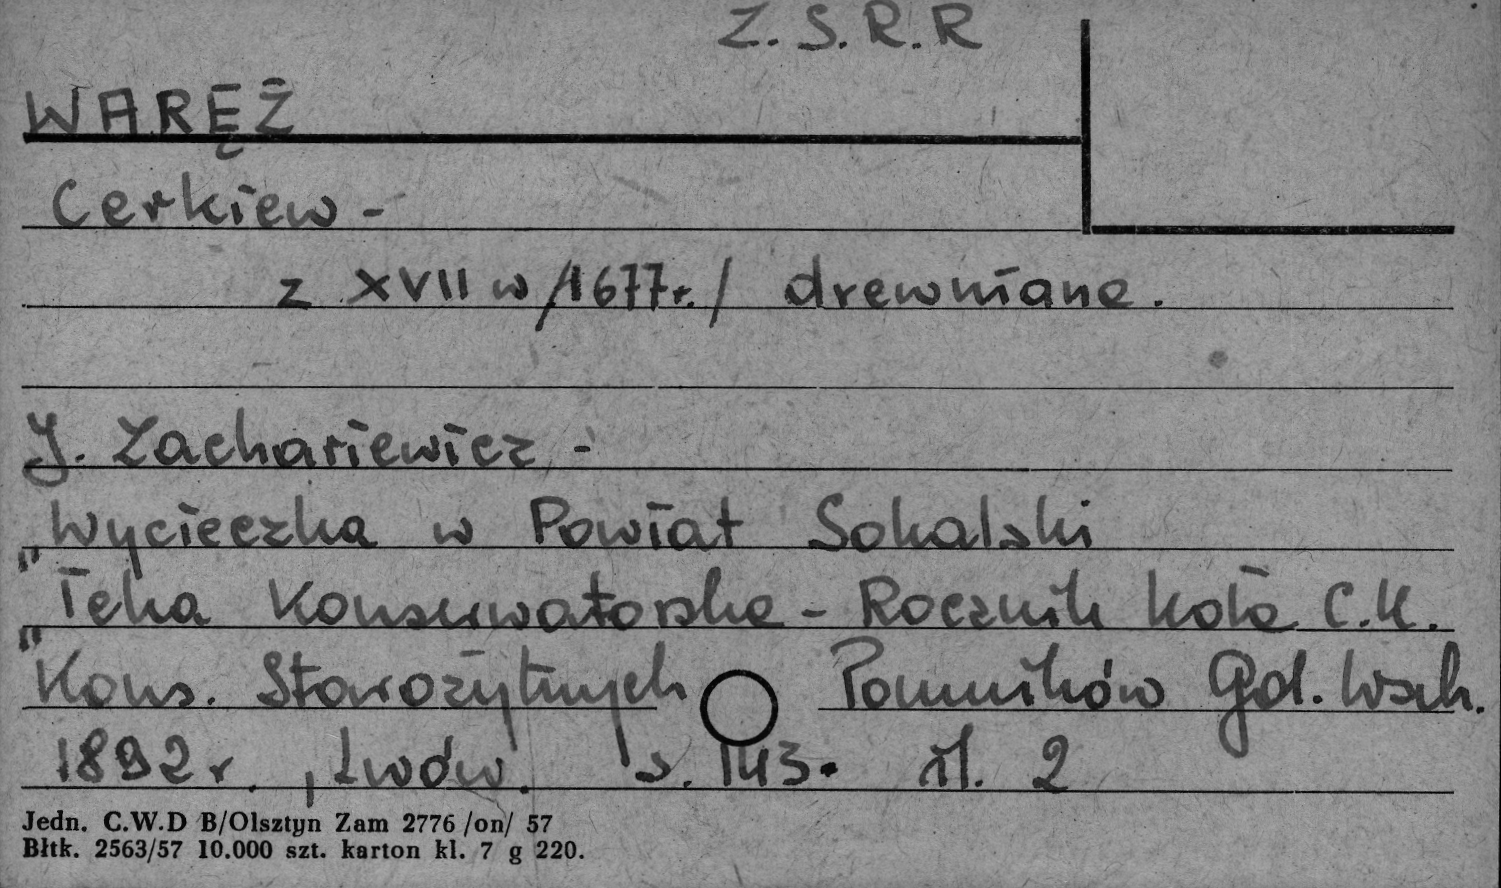 Z.S.R.R
WARĘŻ
Cerkiew -
z XVII w /1677r./ drewniane.
J. Zachariewicz -
Wycieczka w Powiat Sokalski
"Teka Konserwatorska - Rocznik koła C.K.
"Kons. Starożytnych Pomników Gal. Wsch.
1892 r., Lwów. s. 143. il. 2
Jedn. C.W.D B/Olsztyn Zam 2776 /on/ 57
Błtk. 2563/57 10.000 szt. karton kl. 7 g 220.